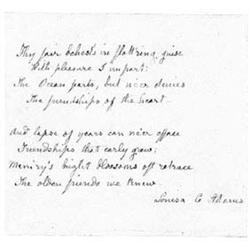 Thy fair behests in flattring guise
With pleasure I impart:
The Ocean parts, but ne'er denies
The friendships of the heart
And lapse of years can ne'er efface
Friendships that early grew:
Mem'ry's bright blossoms oft retrace
The olden friends we knew.
Louisa C Adams